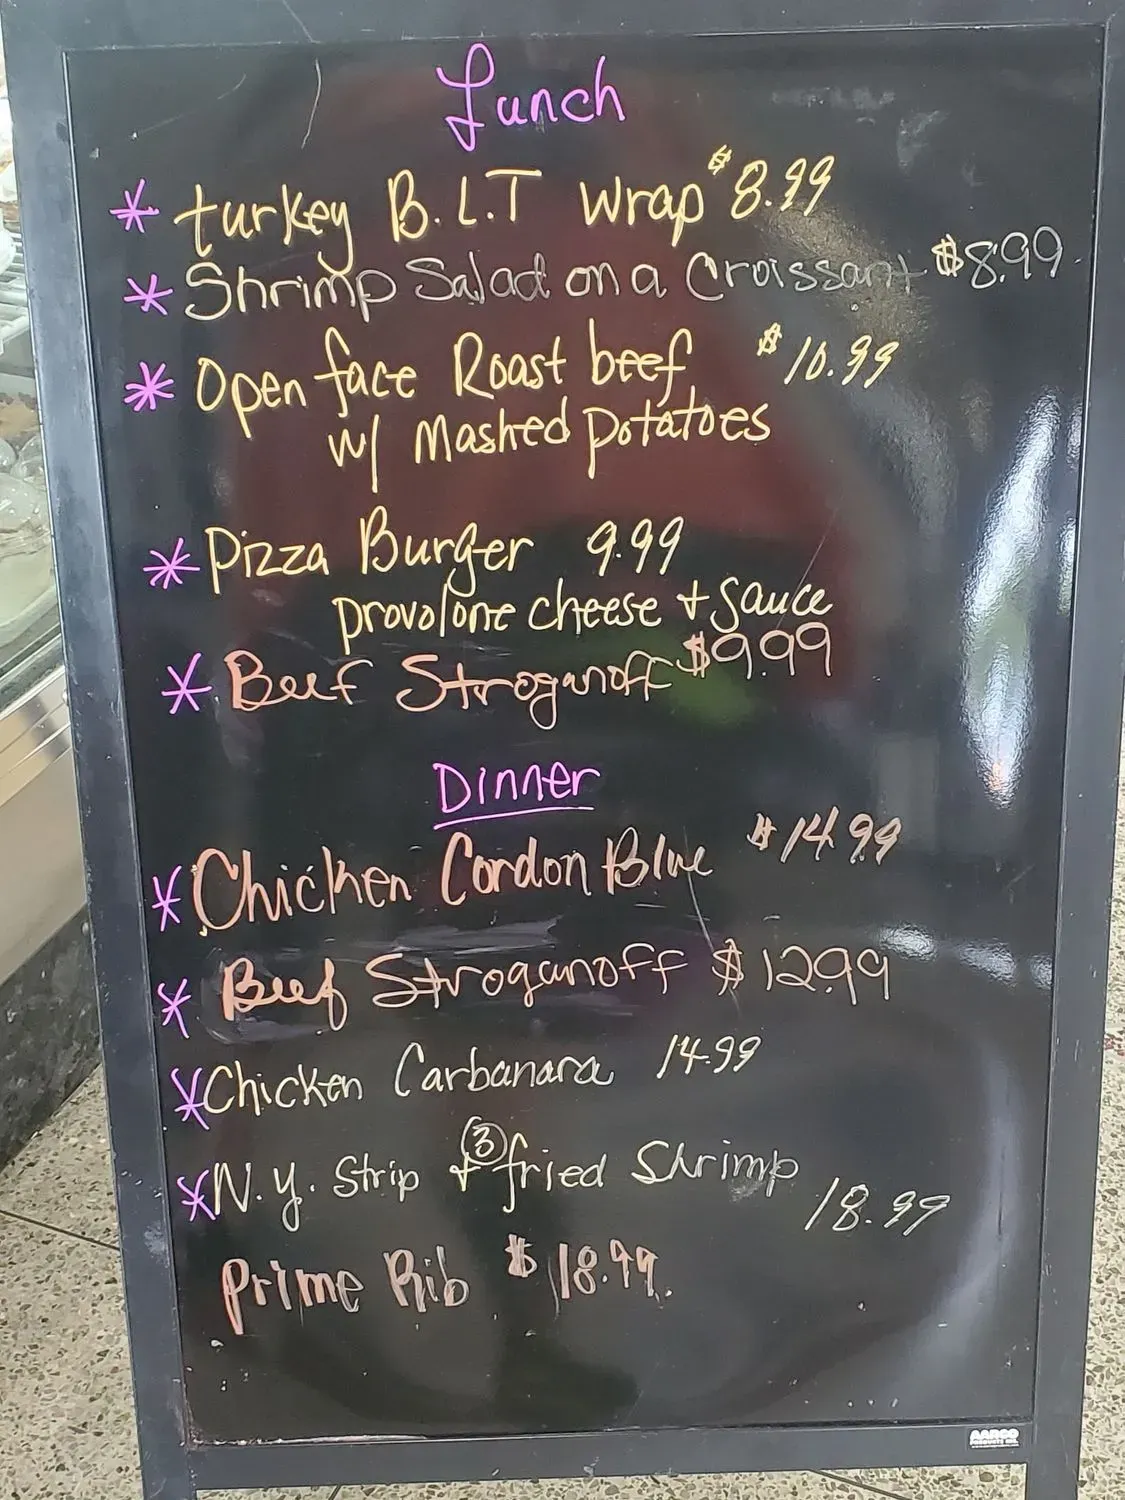 Lunch
* turkey B.L.T wrap $8.99
* Shrimp Salad on a Croissant $8.99
* Open face Roast beef $10.99
w/ Mashed potatoes
* Pizza Burger 9.99
provolone cheese + sauce
* Beef Stroganoff $9.99
Dinner
* Chicken Cordon Blue $14.99
* Beef Stroganoff $12.99
* Chicken Carbanara 14.99
* N.y. Strip + ③ fried Shrimp
18.99
Prime Rib $18.99
AARCO
PRODUCTS INC.